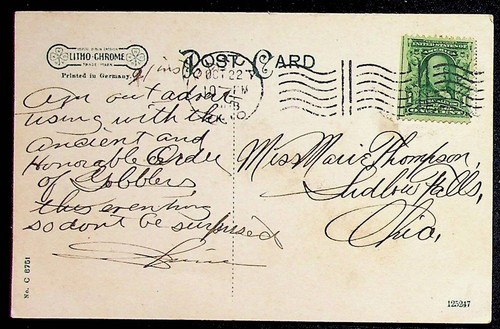 LITHO-CHROME
TRADE MARK
Printed in Germany.
POST CARD
OCT 22
UNITED STATES OF AMERICA
Am out adver
tising with the
ancient and
Honorable Order
of Gobblers
this evening
so dont be surprised
Miss Marie Thompson,
Ludlow Falls,
Ohio.
No. C 6751
125247